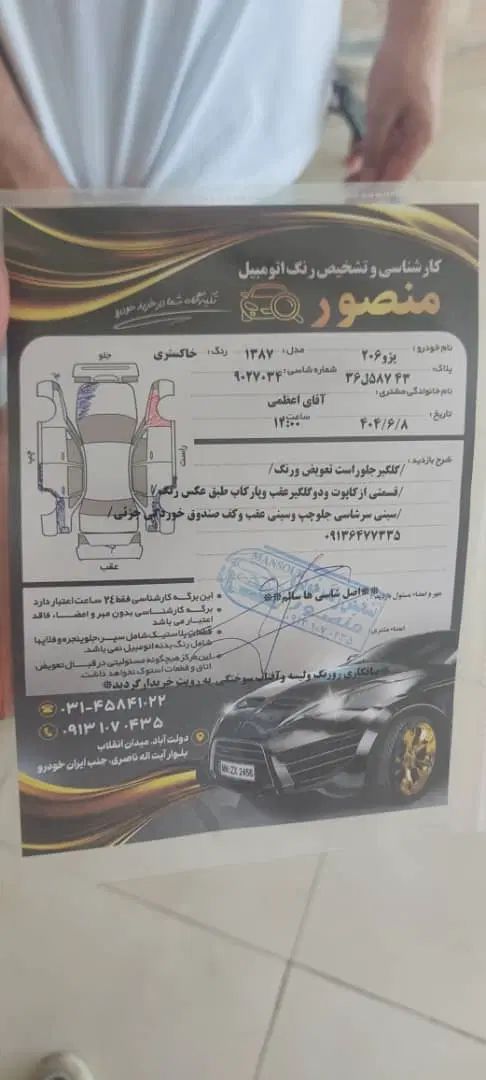 کارشناسی و تشخیص رنگ اتومبیل
منصور
تکیه‌گاه شما در خرید خودرو
نام خودرو: پژو ۲۰۶ مدل: ۱۳۸۷ رنگ: خاکستری
پلاک: ۴۳ ۵۸۷ل۳۶ شماره شاسی: ۹۰۲۷۰۳۴
نام خانوادگی مشتری: آقای اعظمی
تاریخ: ۴۰۴/۶/۸ ساعت: ۱۲:۰۰
جلو
چپ
راست
عقب
شرح بازدید:
/گلگیر جلو راست تعویض و رنگ/
/قسمتی از کاپوت و دو گلگیر عقب و پارکاب طبق عکس رنگ/
/سینی سرشاسی جلو چپ و سینی عقب و کف صندوق خوردگی جزئی/
۰۹۱۳۶۴۷۷۳۳۵
مهر و امضاء مسئول بازدید: **اصل شاسی ها سالم**
امضاء مشتری:
MANSOUR
منصور
۰۹۱۳۱۰۷۰۴۳۵
این برگه کارشناسی فقط ۲۴ ساعت اعتبار دارد
برگه کارشناسی بدون مهر و امضاء، فاقد اعتبار می باشد
قطعات پلاستیک شامل سپر، جلو پنجره و فلاپها شامل رنگ بدنه اتومبیل نمی باشد.
این مرکز هیچگونه مسئولیتی در قبال تعویض اتاق و قطعات استوک نخواهد داشت.
لکه‌گاری رو رنگ و لیسه و آفتاب سوختگی به رویت خریدار گردید*
۰۳۱-۴۵۸۴۱۰۲۲
۰۹۱۳۱۰۷۰۴۳۵
دولت آباد، میدان انقلاب
بلوار آیت اله ناصری، جنب ایران خودرو